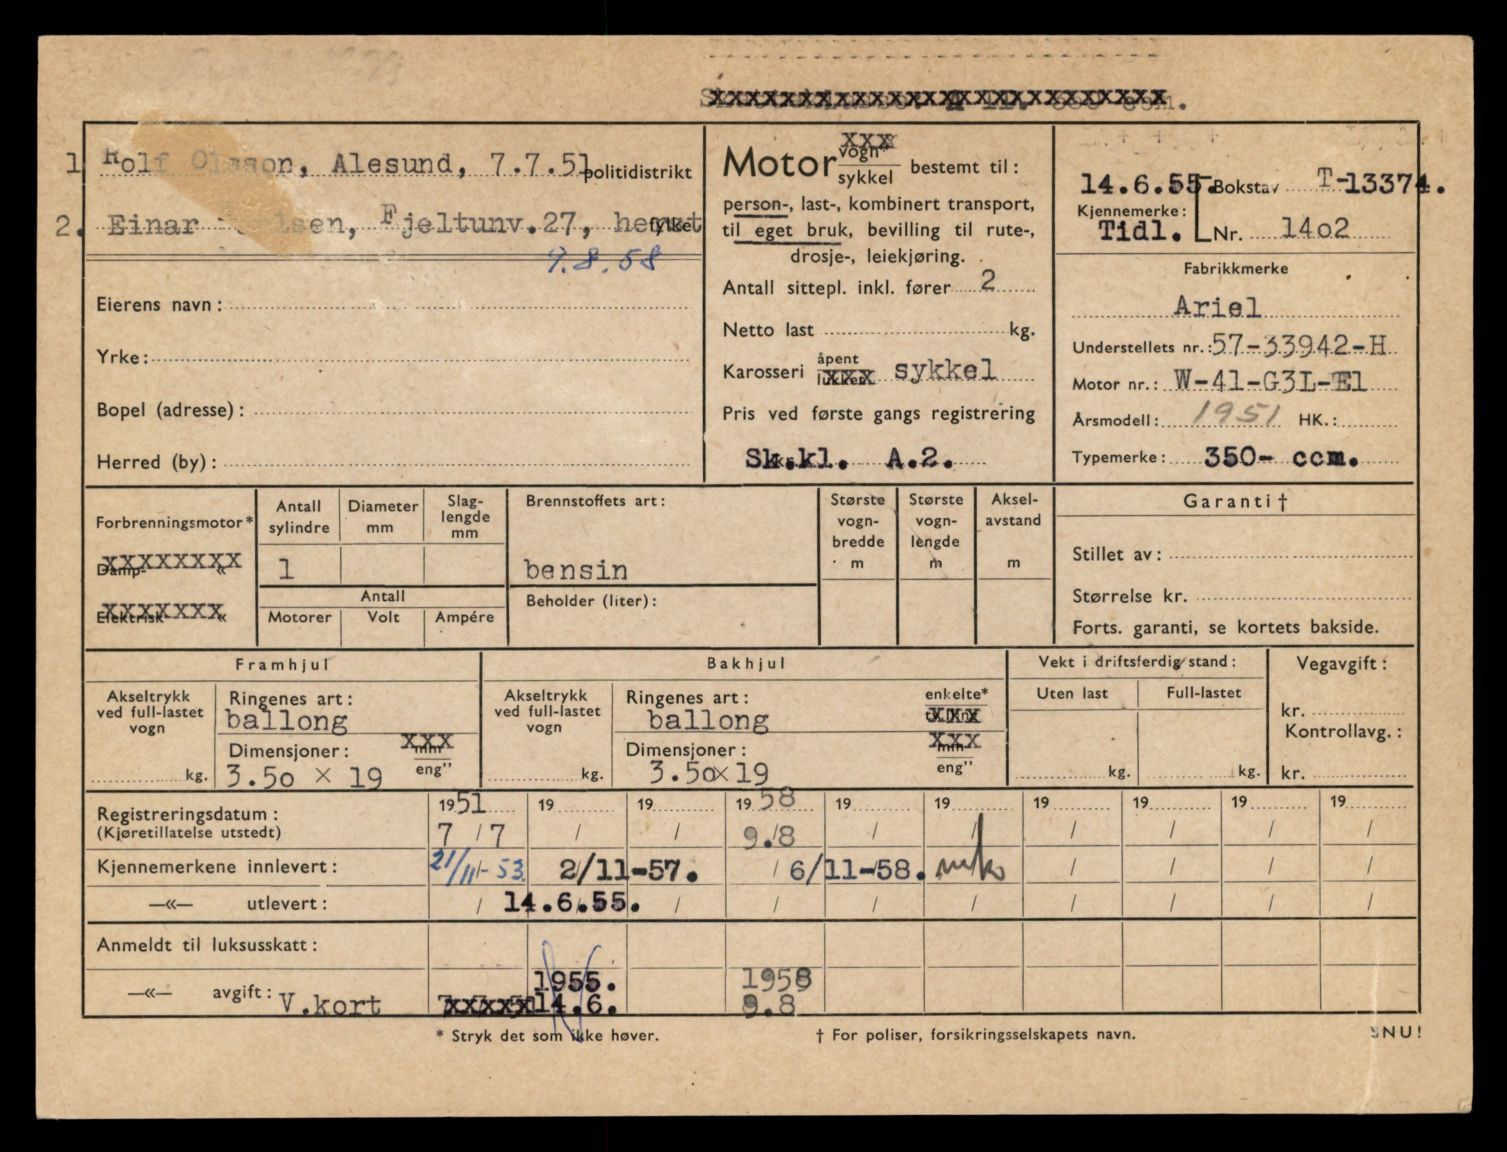 1 Rolf Olsson, Alesund, 7.7.51 politidistrikt
2. Einar Nilsen, Fjeltunv.27, her fylket
9.8.58
Eierens navn:
Yrke:
Bopel (adresse):
Herred (by):
Motor vogn* XXX
sykkel bestemt til:
person-, last-, kombinert transport,
til eget bruk, bevilling til rute-,
drosje-, leiekjøring.
Antall sittepl. inkl. fører 2
Netto last kg.
Karosseri åpent
lukket XXX sykkel
Pris ved første gangs registrering
Sk.kl. A.2.
14.6.55. Bokstav T-13374.
Kjennemerke:
Tidl. Nr. 14o2
Fabrikkmerke
Ariel
Understellets nr.: 57-33942-H
Motor nr.: W-41-G3L-E1
Årsmodell: 1951 HK.:
Typemerke: 350- ccm.
Forbrenningsmotor*
Damp- « XXXXXXXX
Elektrisk « XXXXXXX
Antall sylindre
Diameter mm
Slag-lengde mm
1
Antall
Motorer Volt Ampére
Brennstoffets art:
bensin
Beholder (liter):
Største vogn-bredde m
Største vogn-lengde m
Aksel-avstand m
Garanti †
Stillet av:
Størrelse kr.
Forts. garanti, se kortets bakside.
Framhjul
Akseltrykk ved full-lastet vogn
kg.
Ringenes art:
ballong
Dimensjoner: XXX
mm
eng"
3.5o x 19
Bakhjul
Akseltrykk ved full-lastet vogn
kg.
Ringenes art: enkelte*
ballong XXX
Dimensjoner: XXX
mm
eng"
3.5ox19
Vekt i driftsferdig stand:
Uten last Full-lastet
kg. kg.
Vegavgift:
kr.
Kontrollavg.:
kr.
Registreringsdatum: 1951 19 19 1958 19 19 19 19 19 19
(Kjøretillatelse utstedt) 7 / 7 / / 9./8 / / / / / /
Kjennemerkene innlevert: 21/11-53. 2/11-57. / 6/11-58. / / / /
—«— utlevert: / 14.6.55. / / / / / / / /
Anmeldt til luksusskatt:
1955. 1958
—«— avgift: V.kort 14.6. 9.8
* Stryk det som ikke høver.
† For poliser, forsikringsselskapets navn.
SNU!